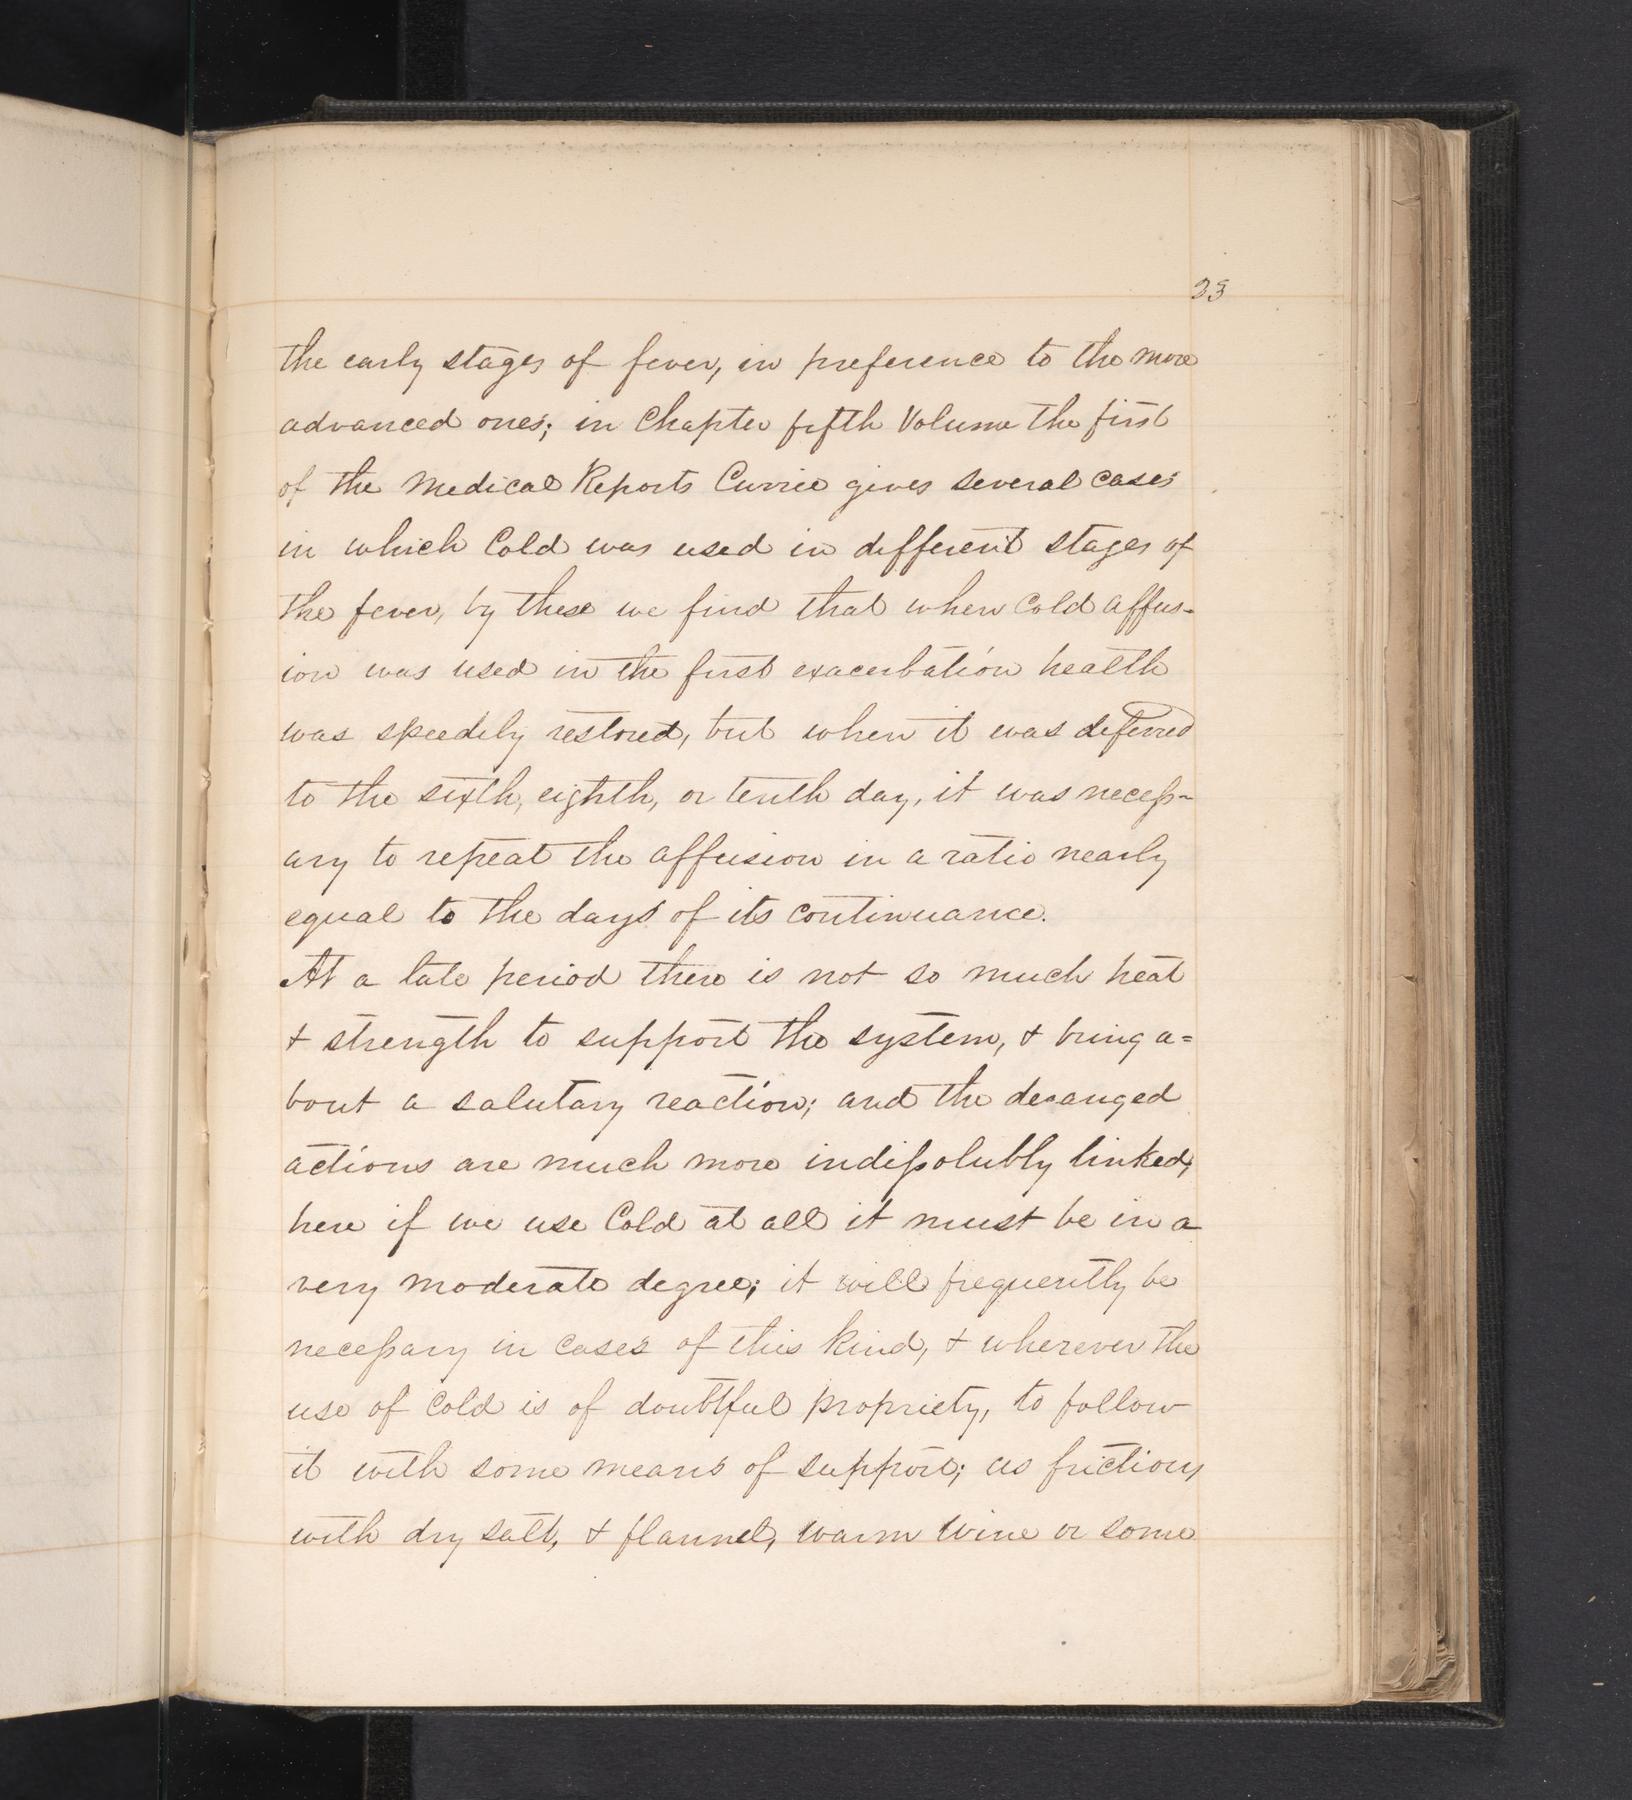 23
the early stages of fever, in preference to the more
advanced ones; in Chapter fifth Volume the first
of the Medical Reports Currie gives several cases
in which Cold was used in different stages of
the fever, by these we find that when Cold affus-
ion was used in the first exacerbation health
was speedily restored, but when it was deferred
to the sixth, eighth, or tenth day, it was necess-
ary to repeat the affusion in a ratio nearly
equal to the days of its continuance.
At a late period there is not so much heat
& strength to support the system, & bring a=
bout a salutary reaction; and the deranged
actions are much more indissolubly linked,
here if we use Cold at all it must be in a
very moderate degree; it will frequently be
necessary in cases of this kind, & wherever the
use of Cold is of doubtful propriety, to follow
it with some means of support; as frictions
with dry salt, & flannel, warm wine or some